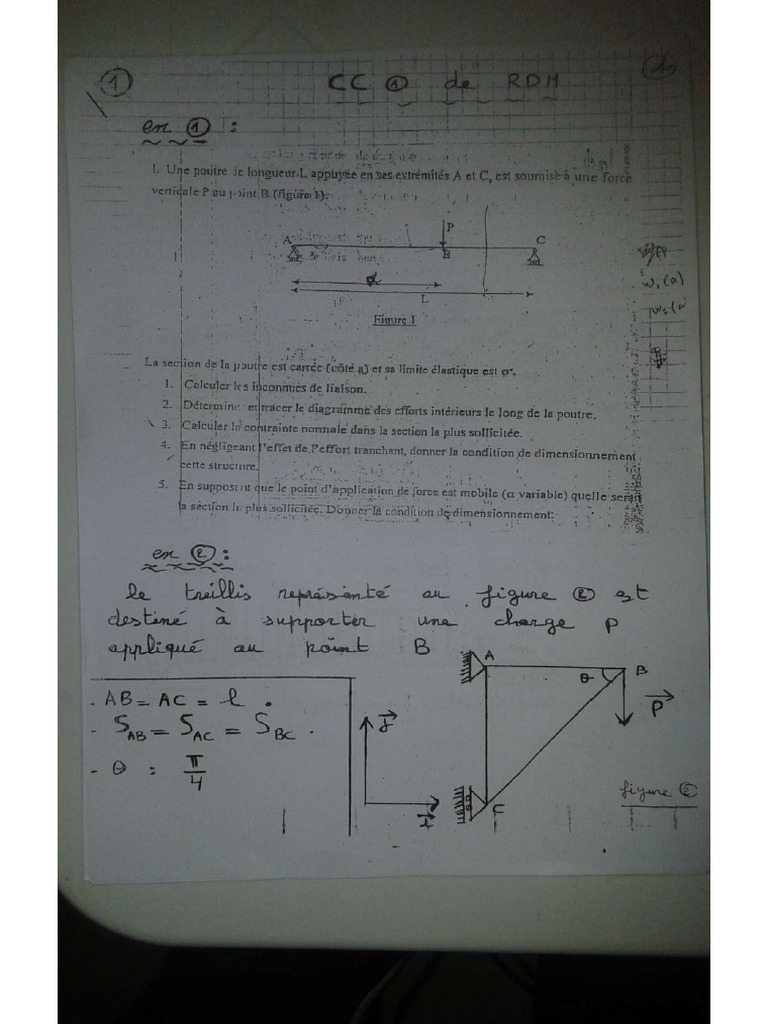 1
CC ① de RDM
1
en ① :
1. Une poutre de longueur L, appuyée en ses extrémités A et C, est soumise à une force
verticale P au point B (figure 1).
P
A
B
C
α
L
Figure 1
w₁(a)
La section de la poutre est carrée (côté a) et sa limite élastique est σ*.
1. Calculer les inconnues de liaison.
2. Déterminer et tracer le diagramme des efforts intérieurs le long de la poutre.
3. Calculer la contrainte normale dans la section la plus sollicitée.
4. En négligeant l'effet de l'effort tranchant, donner la condition de dimensionnement
cette structure.
5. En supposant que le point d'application de force est mobile (α variable) quelle serait
la section la plus sollicitée. Donner la condition de dimensionnement.
en ② :
le treillis représenté au figure ② est
destiné à supporter une charge P
appliqué au point B
- AB = AC = l .
- S_AB = S_AC = S_BC .
- θ : π/4
j
i
A
B
θ
P
C
figure ②